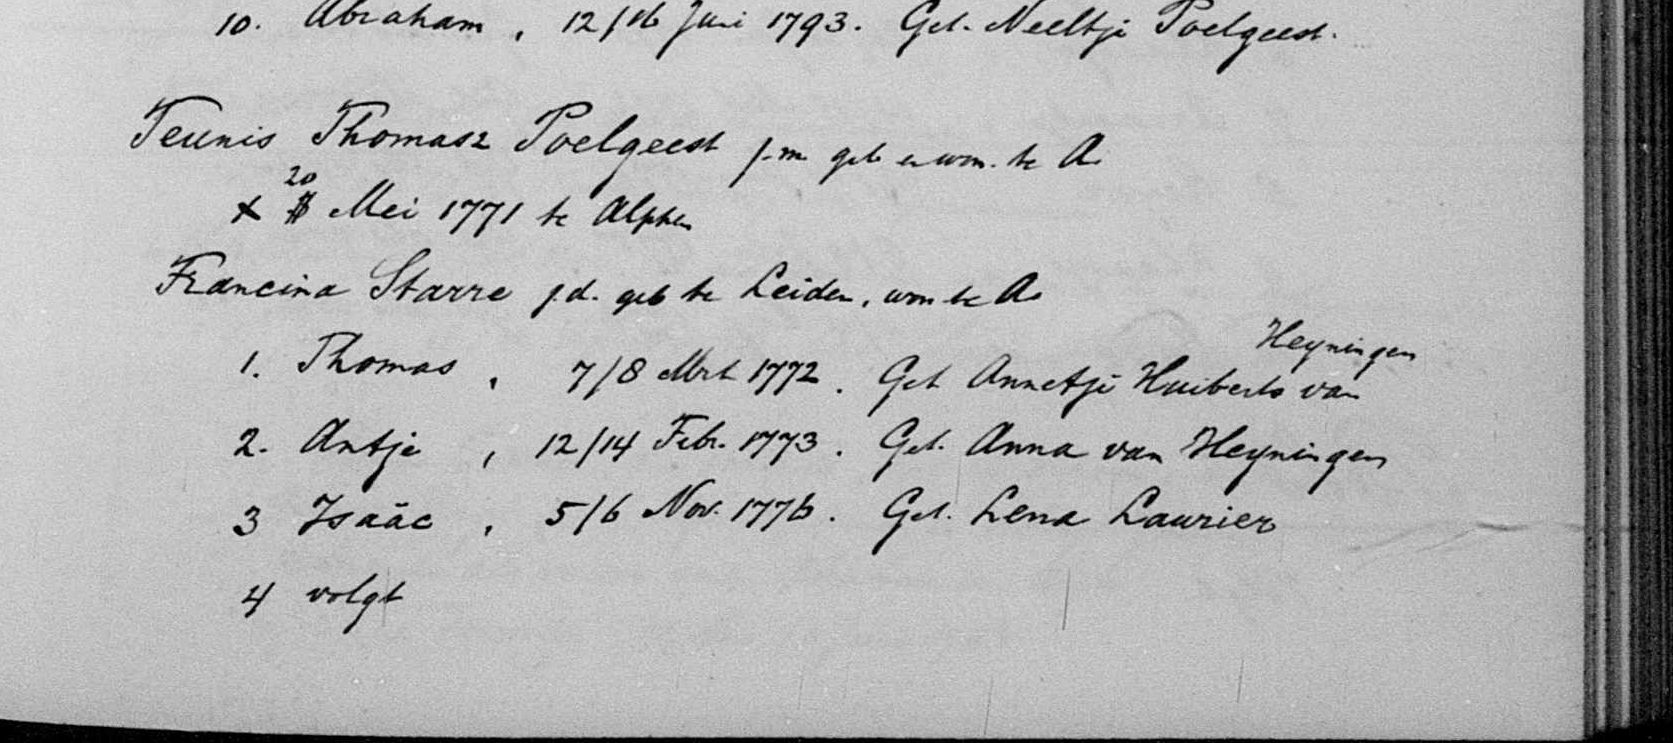 10. Abraham, 12/16 Juni 1793. Get. Neeltje Poelgeest.
Teunis Thomasz Poelgeest j.m geb en won. te A.
20
x Mei 1771 te Alphen
Francina Starre j.d. geb te Leiden, won te A.
Heyningen
1. Thomas, 7/8 Mrt 1772. Get Annetje Huiberts van
2. Antje, 12/14 Febr. 1773. Get. Anna van Heyningen
3 Isaäc, 5/6 Nov. 1776. Get. Lena Laurier
4 volgt